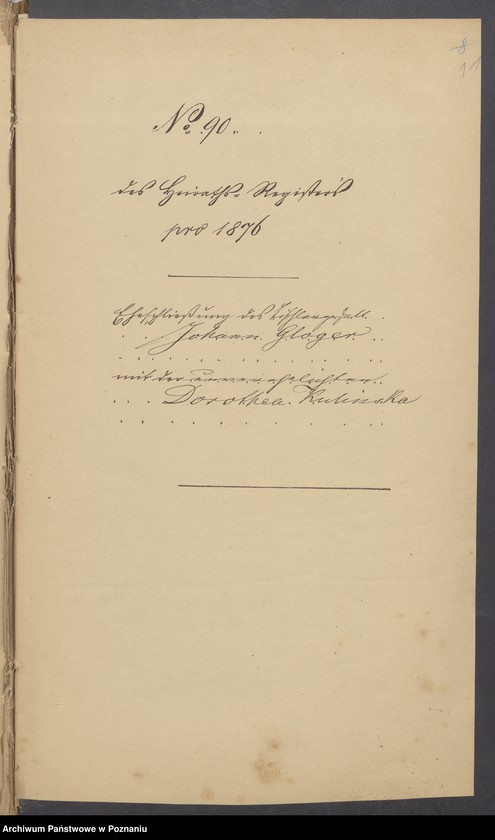 11
No. 90.
des Heiraths-Registers
pro 1876
Eheschließung des Tischlergesell.
Johann Gloger
mit der unverehelichten
Dorothea Kulinska
Archiwum Państwowe w Poznaniu